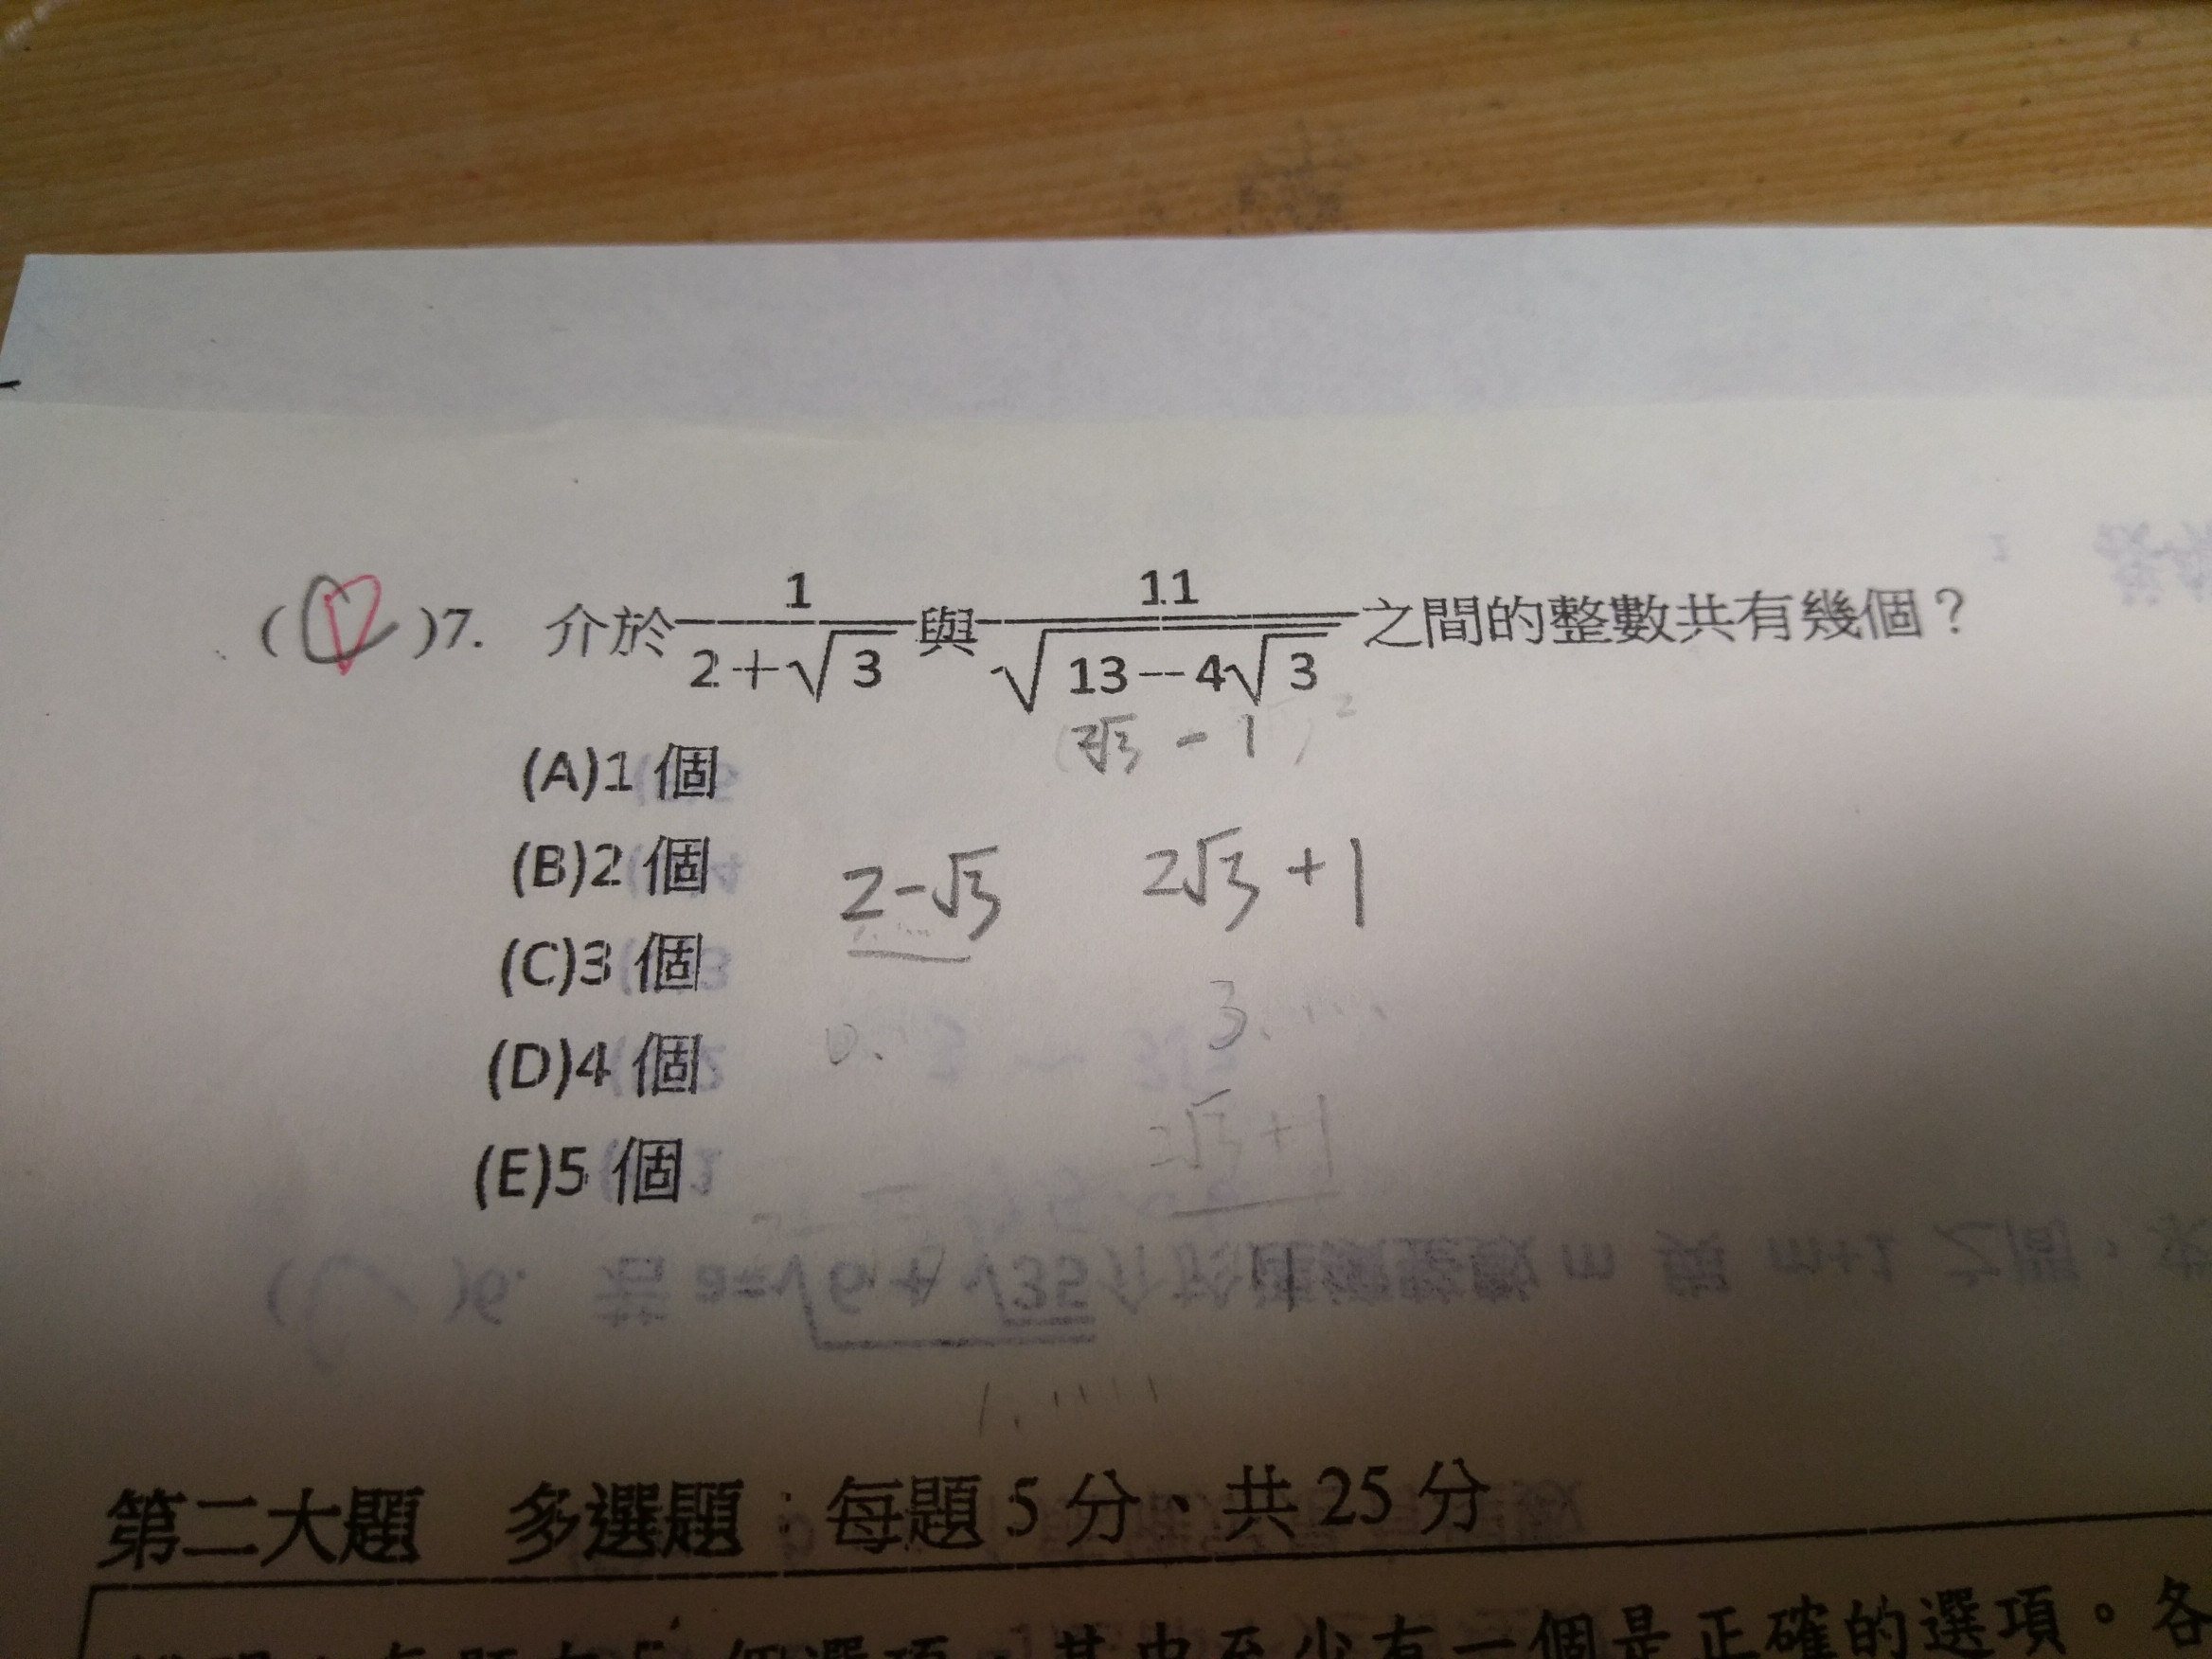 ( )7. 介於 1/(2+√3) 與 11/√(13−4√3) 之間的整數共有幾個？
2√3 - 1
(A)1 個
(B)2 個
2-√3 2√3+1
(C)3 個
0. 3. ....
(D)4 個
2√3+1
(E)5 個
1. ....
第二大題 多選題：每題 5 分、共 25 分
個選項，其中至少有一個是正確的選項。各